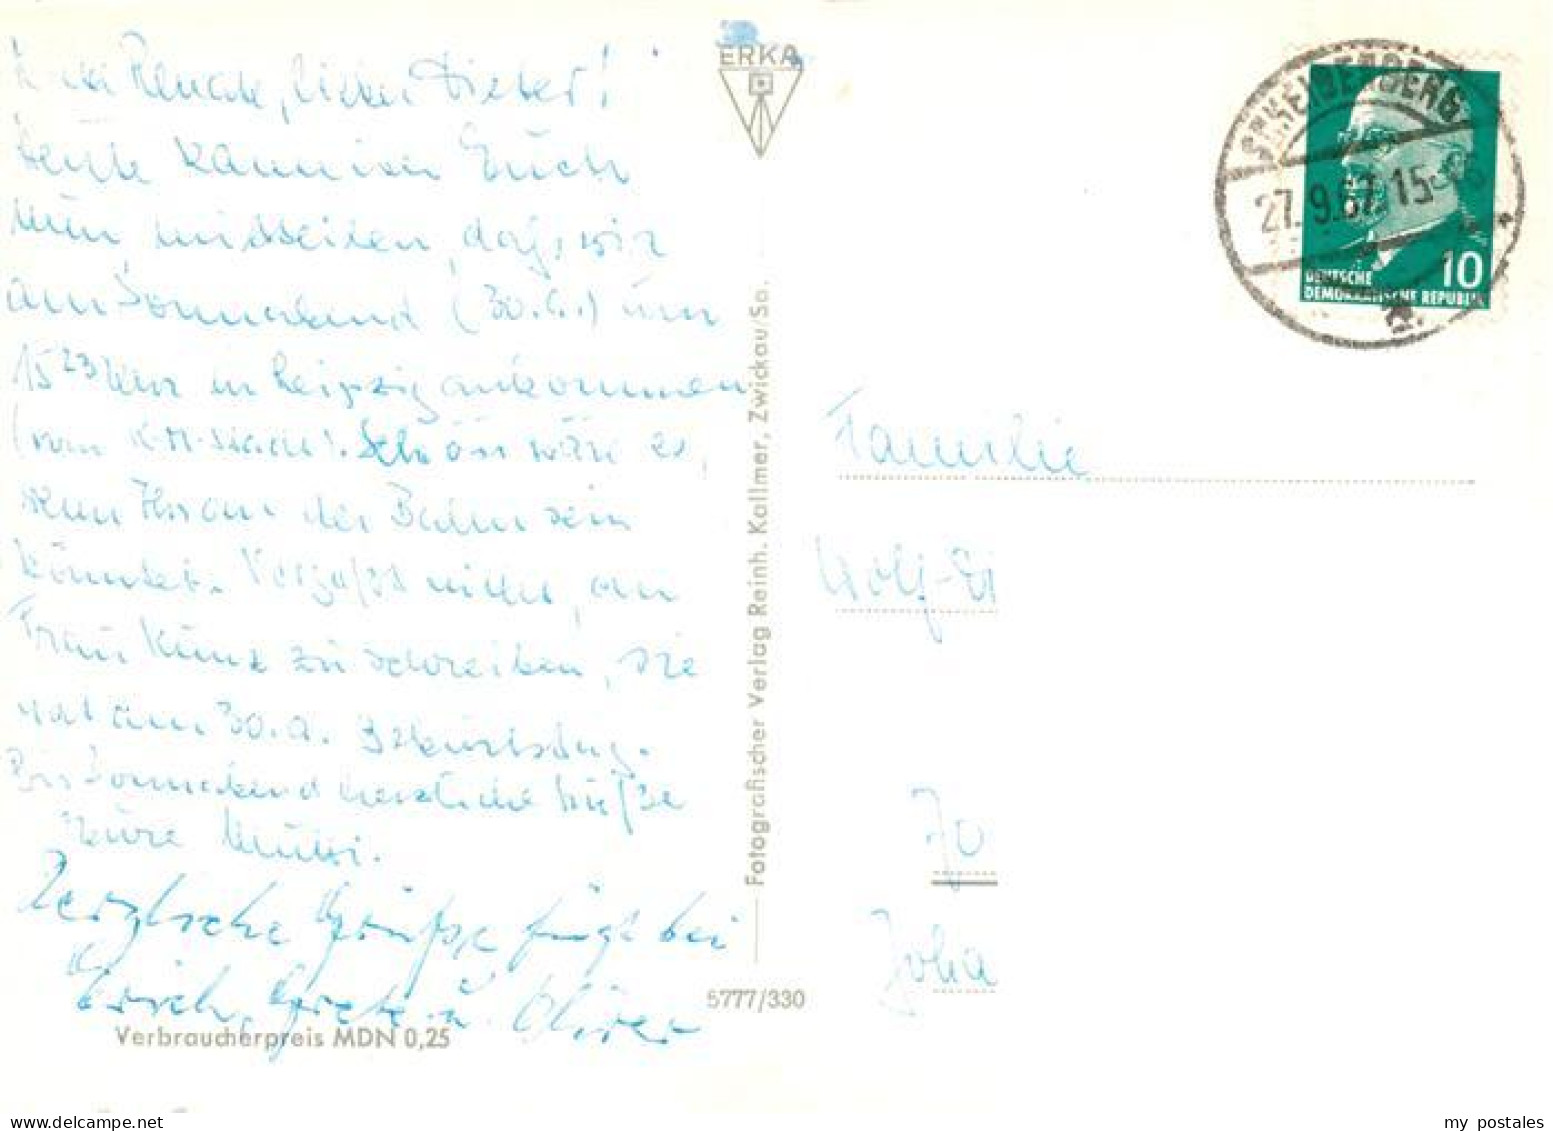 Liebe Renate, lieber Dieter!
Heute kann ich Euch
nun mitteilen, daß wir
am Sonnabend (30.9.) um
15 23 Uhr in Leipzig ankommen
(von K-M-Stadt). Schön wäre es,
wenn Ihr an der Bahn sein
könntet. Vergeßt nicht, an
Frau Kunz zu schreiben, sie
hat am 30.9. Geburtstag.
Bis Sonnabend herzliche Grüße
Eure Mutti.
Herzliche Grüße fügt bei
Erich, Grete u. Oliver
Verbraucherpreis MDN 0,25
ERKA
Fotografischer Verlag Reinh. Kallmer, Zwickau/Sa.
5777/330
27.9.67.15
10
DEUTSCHE
DEMOKRATISCHE REPUBLIK
Familie
Wolf-
70
Joha
my postales